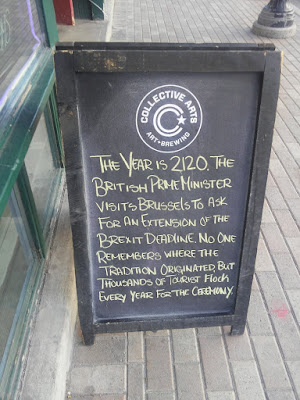 COLLECTIVE ARTS
ART + BREWING
THE YEAR IS 2120. THE
BRITISH PRIME MINISTER
VISITS BRUSSELS TO ASK
FOR AN EXTENSION OF THE
BREXIT DEADLINE. NO ONE
REMEMBERS WHERE THE
TRADITION ORIGINATED, BUT
THOUSANDS OF TOURIST FLOCK
EVERY YEAR FOR THE CEREMONY.